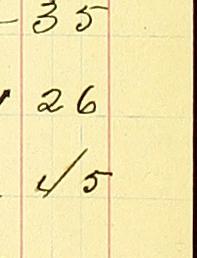 35
26
45